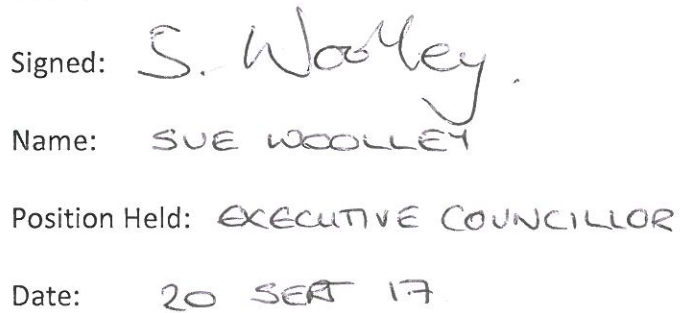 Signed: S. Woolley.
Name: SUE WOOLLEY
Position Held: EXECUTIVE COUNCILLOR
Date: 20 SEPT 17